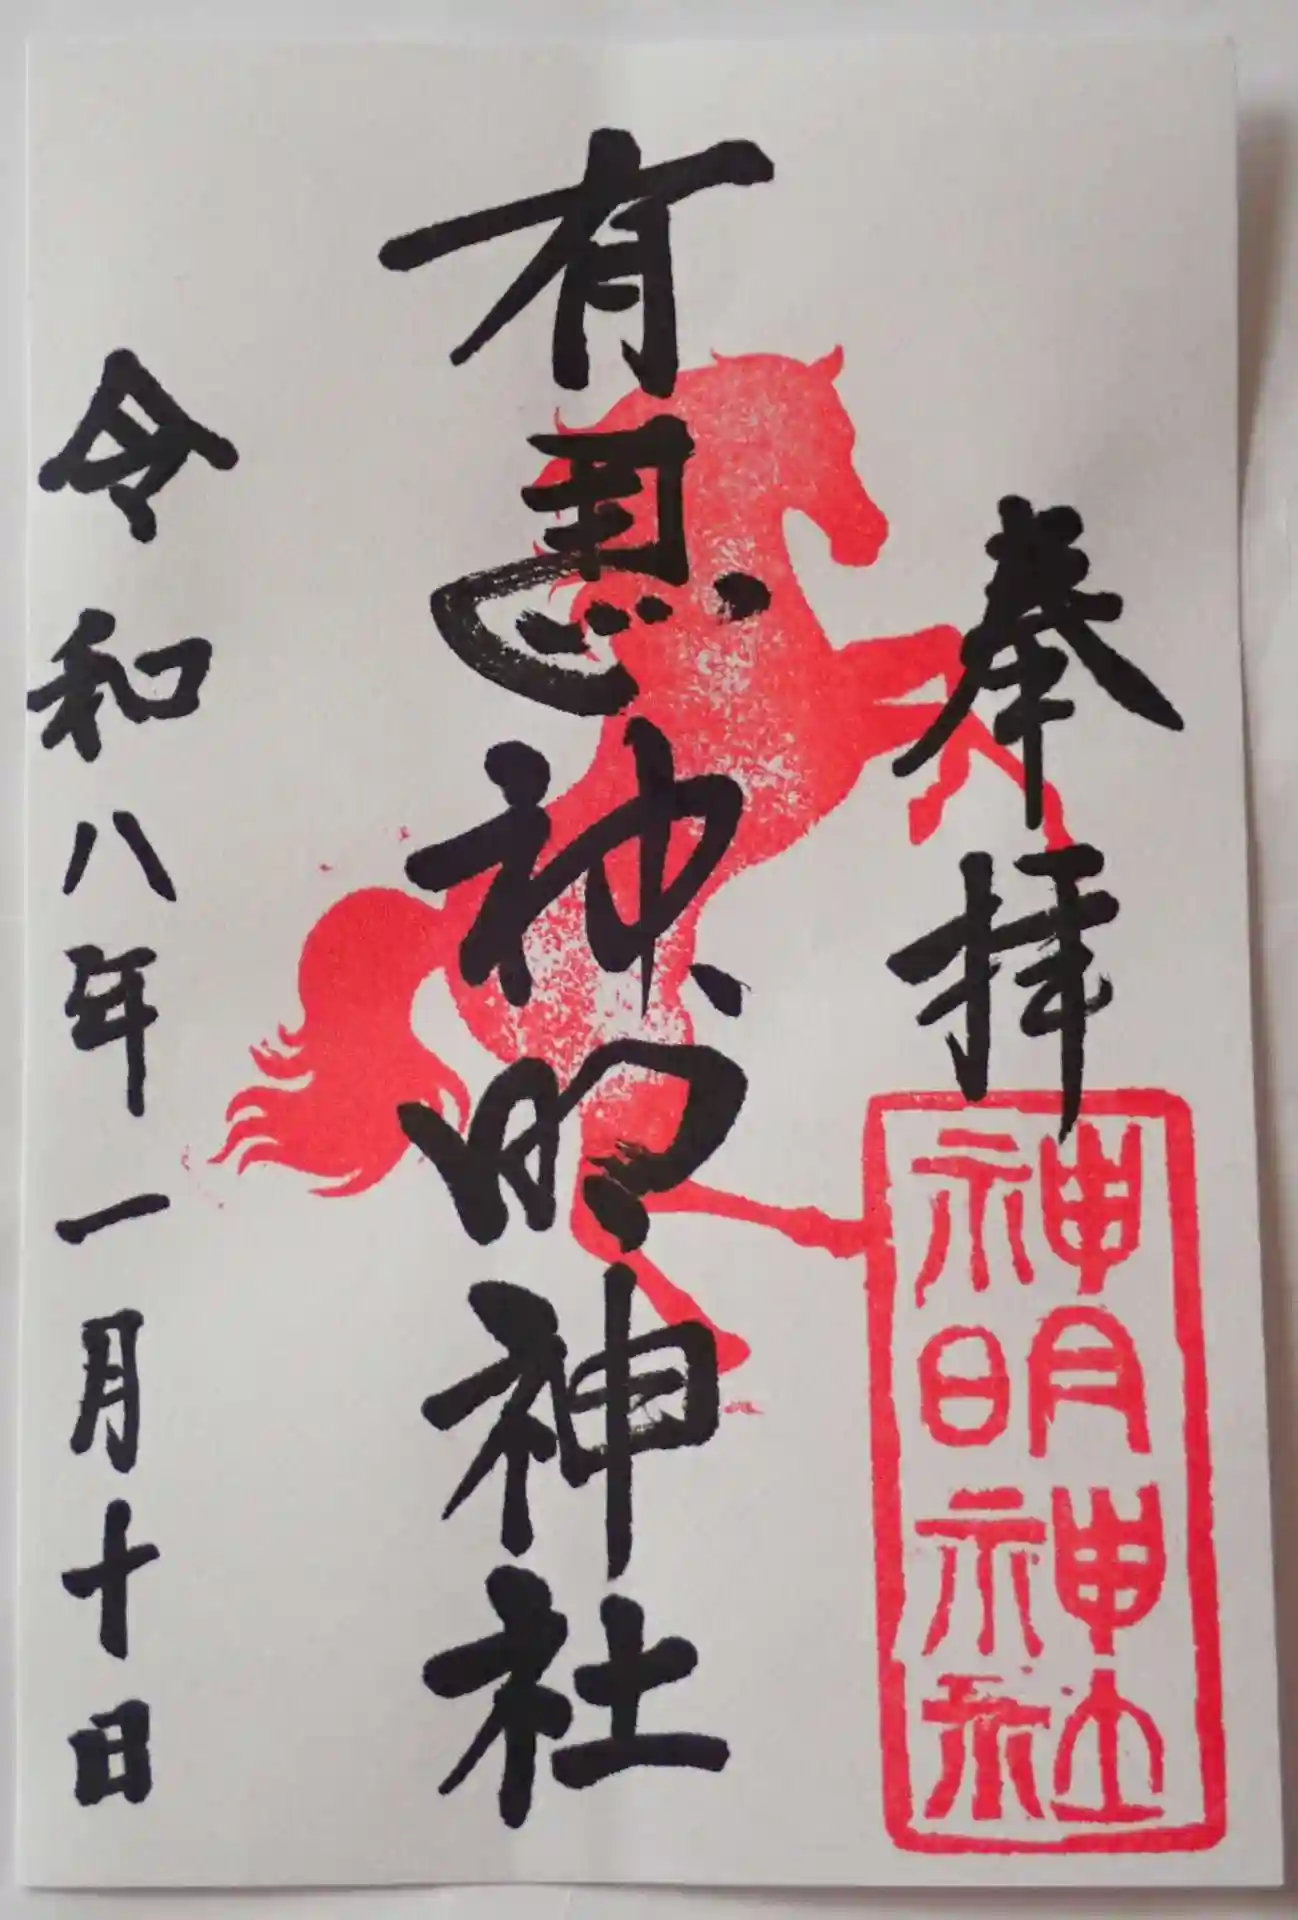 奉拝
神明神社
有馬神明神社
令和八年一月十日